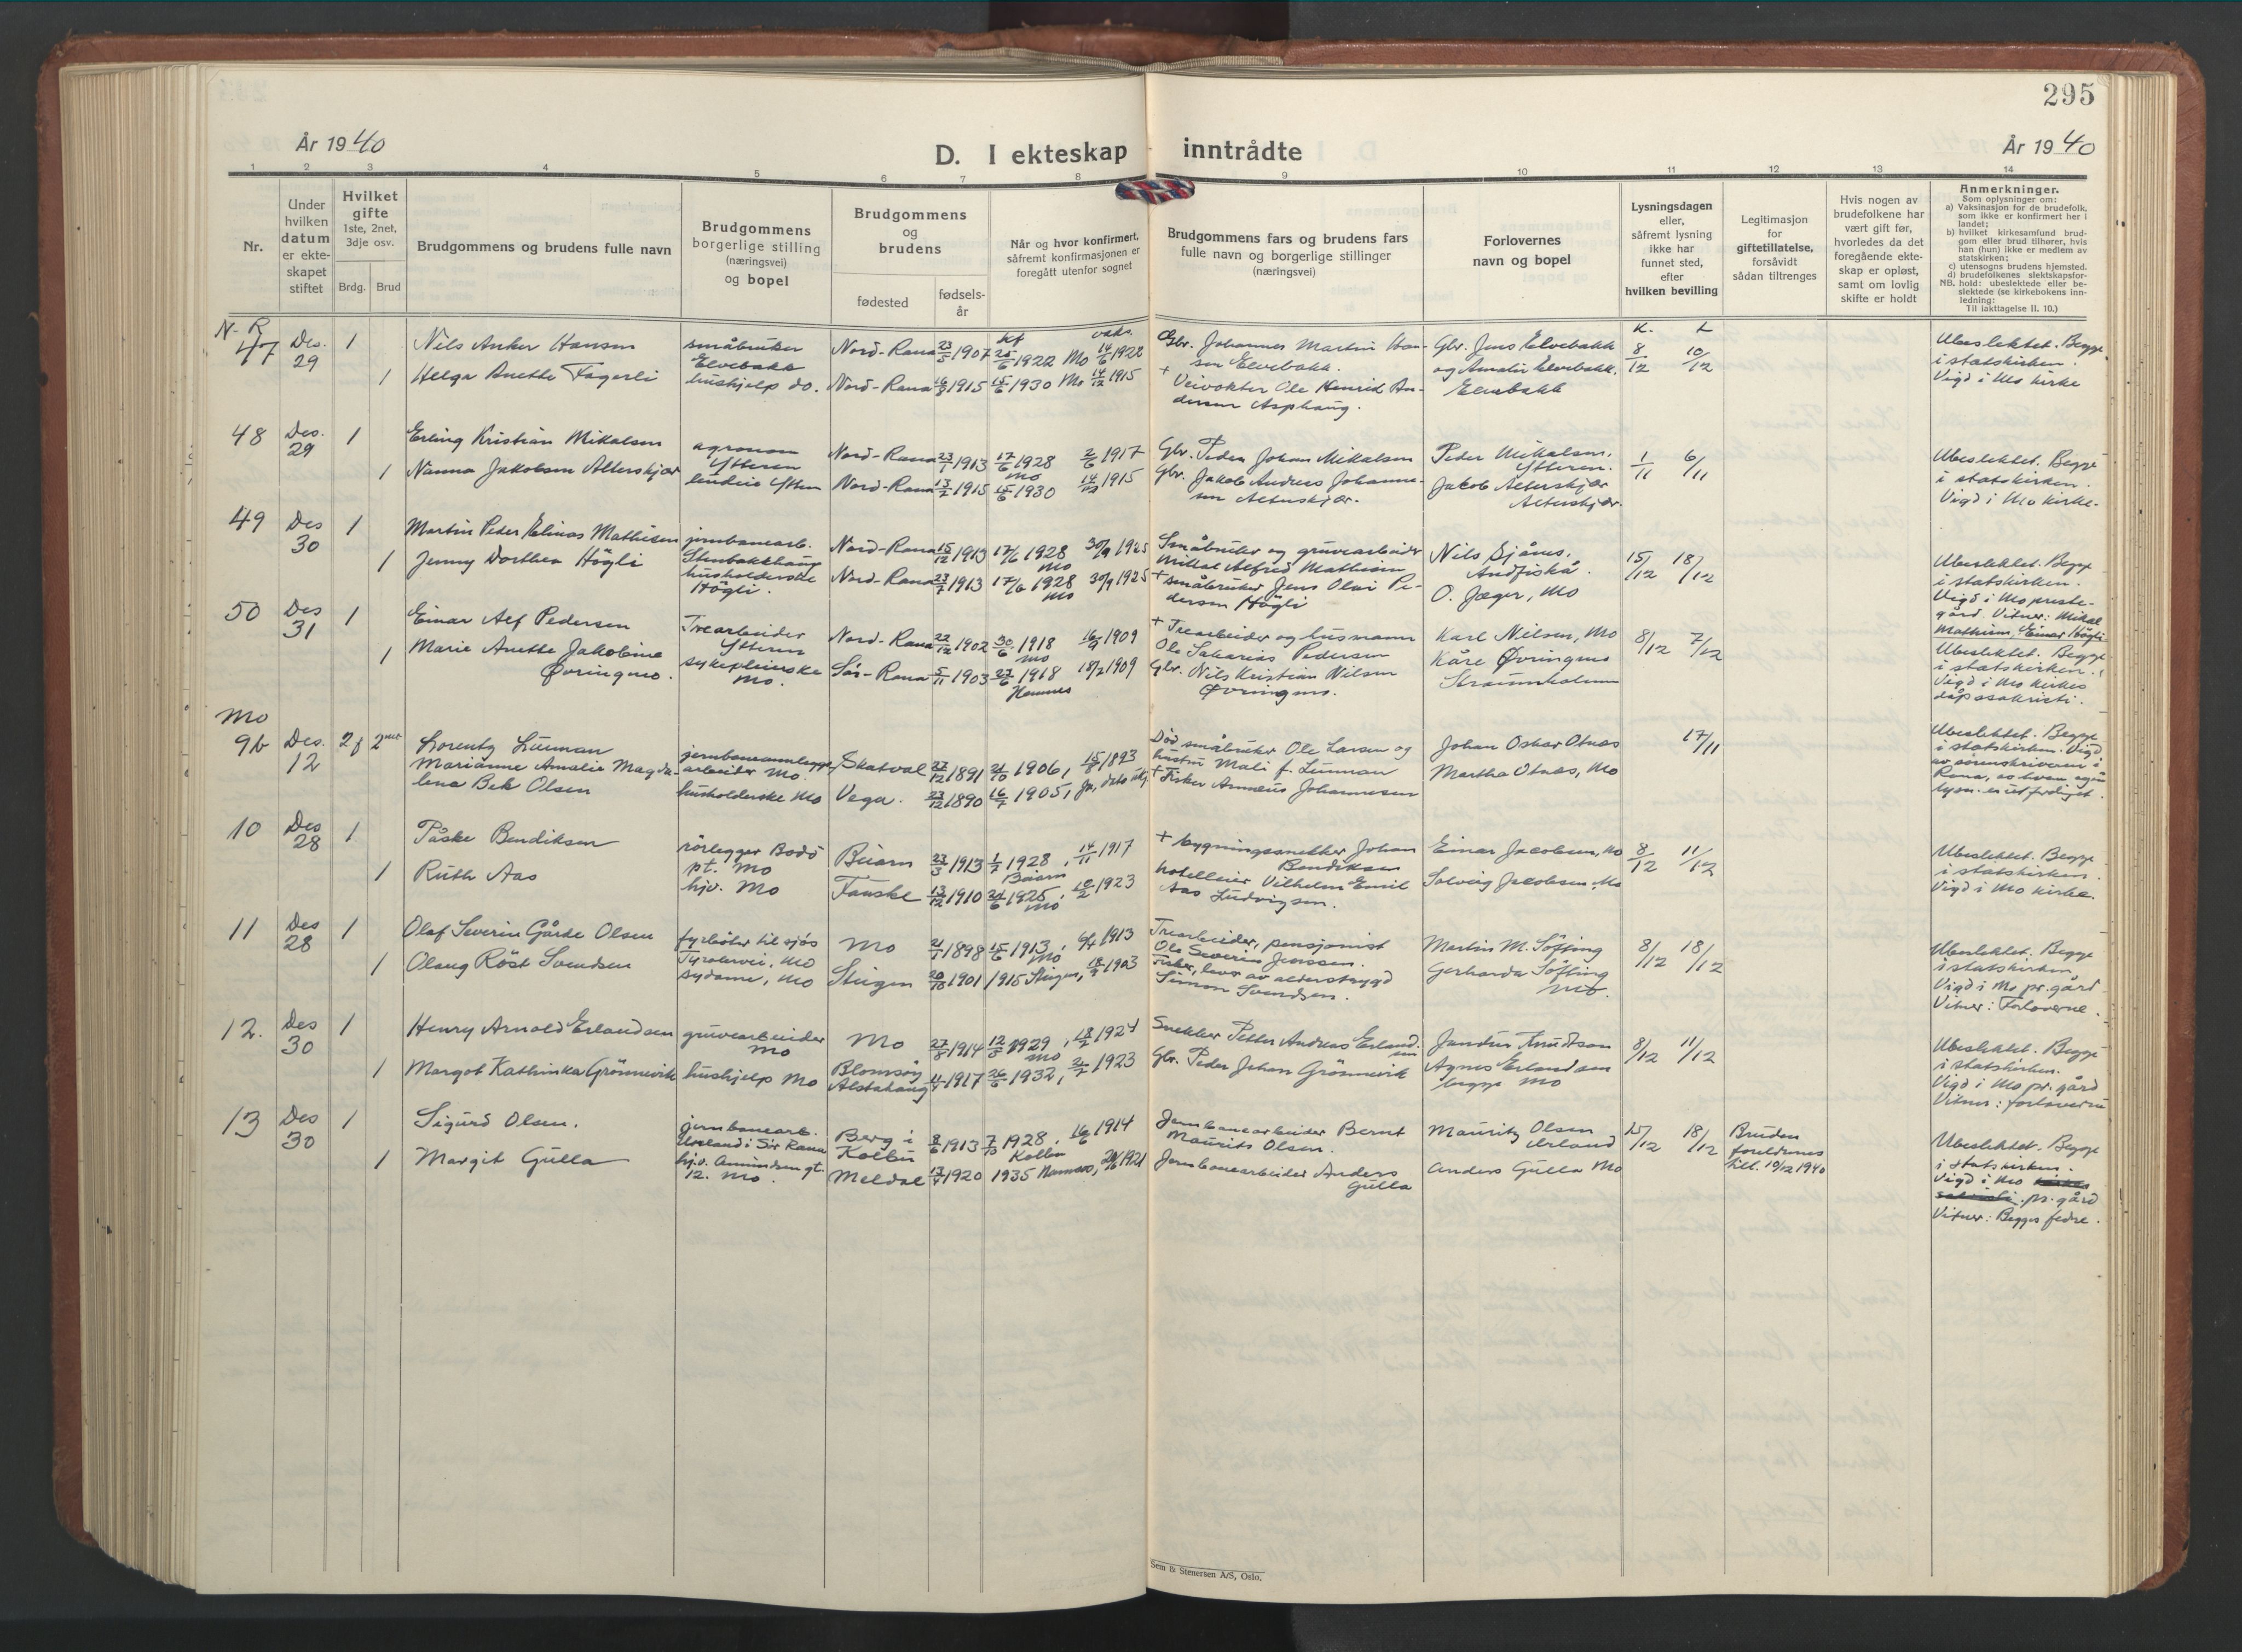 295
År 1940
D. I ekteskap inntrådte
År 1940
1 2 3 4 5 6 7 8 9 10 11 12 13 14
Nr.
Under
hvilken
datum
er ekte-
skapet
stiftet
Hvilket
gifte
1ste, 2net,
3dje osv.
Brdg. Brud
Brudgommens og brudens fulle navn
Brudgommens
borgerlige stilling
(næringsvei)
og bopel
Brudgommens
og
brudens
fødested
fødsels-
år
Når og hvor konfirmert,
såfremt konfirmasjonen er
foregått utenfor sognet
Brudgommens fars og brudens fars
fulle navn og borgerlige stillinger
(næringsvei)
Forlovernes
navn og bopel
Lysningsdagen
eller,
såfremt lysning
ikke har
funnet sted,
efter
hvilken bevilling
Legitimasjon
for
giftetillatelse,
forsåvidt
sådan tiltrenges
Hvis nogen av
brudefolkene har
vært gift før,
hvorledes da det
foregående ekte-
skap er opløst,
samt om lovlig
skifte er holdt
Anmerkninger.
Som oplysninger om:
a) Vaksinasjon for de brudefolk,
som ikke er konfirmert her i
landet;
b) hvilket kirkesamfund brud-
gom eller brud tilhører, hvis
han (hun) ikke er medlem av
statskirken;
c) utensogns brudens hjemsted.
d) brudefolkenes slektskapsfor-
NB. hold: ubeslektede eller be-
slektede (se kirkebokens inn-
ledning:
Til iakttagelse II. 10.)
N-R
47 Des. 29 1
Nils Anker Hansen
1 Helga Anette Fagerli
småbruker
Elvebakk
hushjelp do.
Nord-Rana 23/5 1907
Nord-Rana 16/8 1915
kf vaks.
25/6 1922 Mo 14/6 1922
15/6 1930 Mo 14/12 1915
Gbr. Johannes Martin Han-
sen Elvebakk.
+ Veivokter Ole Henrik An-
dersen Asphaug.
Gbr. Jens Elvebakk
og Amalie Elvebakk.
Elvebakk
K. L
8/12 10/12
Ubeslektet. Begge
i statskirken.
Vigd i Mo kirke
48 Des. 29 1
Erling Kristian Mikalsen
1 Nanna Jakobsen Alterskjær
agronom
Ytteren
lærerinne Ytteren
Nord-Rana 23/1 1913
Nord-Rana 13/2 1915
17/6 1928 2/6 1917
Mo
15/6 1930 14/12 1915
Gbr. Peder Johan Mikalsen
Gbr. Jakob Anders Johanne-
sen Alterskjær.
Peder Mikalsen,
Ytteren.
Jakob Alterskjær
Alterskjær.
1/11 6/11
Ubeslektet. Begge
i statskirken.
Vigd i Mo kirke.
49 Des 30 1
Martin Peder Elinas Mathisen
1 Jenny Dorthea Högli
jernbanearb.
Stenbakkhaug
husholderske
Högli.
Nord-Rana 15/12 1913
Nord-Rana 23/7 1913
17/6 1928 30/9 1925
Mo
17/6 1928 30/9 1925
Mo
Småbruker og gruvearbeider
Mikal Alfred Mathisen
+ småbruker Jens Olai Pe-
dersen Högli
Nils Sjåmo,
Andfiskå.
O. Jæger, Mo
15/12 18/12
Ubeslektet. Begge
i statskirken.
Vigd i Mo preste-
gård. Vitner: Mikal
Mathisen, Einar Högli
50 Des 31 1
Einar Alf Pedersen
1 Marie Anette Jakobine
Øvringmo.
Trearbeider
Ytteren
sykepleierske
Mo.
Nord-Rana 22/12 1902
Sör-Rana 5/11 1903
30/6 1918 16/9 1909
Mo
23/6 1918 18/2 1909
Hemnes
+ Trearbeider og husmann
Ole Sakarias Pedersen
Gbr. Nils Kristian Nilsen
Øvringmo.
Karl Nilsen, Mo
Kåre Øvringmo
Straumholmen
8/12 7/12
Ubeslektet. Begge
i statskirken.
Vigd i Mo kirkes
dåpssakristi.
Mo
9b Des. 12 2f 2net
Lorentz Lunman
Marianne Amalie Magda-
lena Bek Olsen
jernbaneanleggs
arbeider Mo.
husholderske Mo
Skatval 27/12 1891
Vega. 23/12 1890
21/10 1906, 15/8 1893
16/7 1905, Ja,
Död småbruker Ole Larsen og
hustru Mali f. Lunman
+ Fisker Annæus Johannesen
Johan Oskar Otnes
Martha Otnes, Mo
17/11
Ubeslektet. Begge
i statskirken. Vigd
av sorenskriveren i
Rana, av hvem også
lysn. er utferdiget.
10 Des 28 1
Påske Bendiksen
1 Ruth Aas
rörlegger Bodö
pt. Mo
hjv. Mo
Beiarn 23/3 1913
Fauske 13/12 1910
1/7 1928, 14/11 1917
Beiarn
21/6 1925, 10/2 1923
Mo
+ bygningssnekker Johan
Bendiksen
hotelleier Vilhelm Emil
Aas Ludvigsen.
Einar Jacobsen, Mo
Solveig Jacobsen, Mo
8/12 11/12
Ubeslektet. Begge
i statskirken.
Vigd i Mo kirke.
11 Des 28 1
Olaf Severin Gårde Olsen
1 Olaug Röst Svendsen
fyrböter til sjös
Tyrolervei, Mo
sydame, Mo
Mo 21/7 1898
Steigen 20/10 1901
15/6 1913, 6/4 1913
Mo
1915 Steigen, 18/9 1903
Trearbeider, pensjonist
Ole Severin Jenssen.
Fisker, lever av alderstrygd
Simon Svendsen.
Martin M. Söfting
Gerharda Söfting
Mo.
8/12 18/12
Ubeslektet. Begge
i statskirken
Vigd i Mo pr.gård
Vitner: Forloverne.
12. Des 30 1
Henry Arnold Erlandsen
1 Margot Kathinka Grönnevik
gruvearbeider
Mo
hushjelp Mo
Mo 27/8 1914
Blomsöy
Alstahaug 11/4 1917
12/5 1929, 18/2 1924
Mo
26/6 1932, 2/7 1923
Snekker Petter Andreas Erland-
sen
Gbr. Peder Johan Grönnevik
Knudtson
Agnes Erlandsen
begge Mo
8/12 11/12
Ubeslektet. Begge
i statskirken.
Vigd i Mo pr. gård
Vitner: forloverne
13 Des 30 1
Sigurd Olsen.
1 Margit Gulla
jernbanearb.
Urland i Sör Rana
hjv. Amundsens gt.
12. Mo.
Berg i
Kolbu 8/6 1913
Meldal 17/7 1920
7/10 1928, 16/6 1914
Kolbu
1935 Namsos, 20/6 1921
Jernbanearbeider Bernt
Maurits Olsen.
Jernbanearbeider Anders
Gulla
Mauritz Olsen
Urland
Anders Gulla Mo
15/12 18/12
Bruden
foreldrenes
till. 10/12 1940
Ubeslektet. Begge
i statskirken.
Vigd i Mo
pr. gård
Vitner: Begges fedre.
Sem & Stenersen A/S, Oslo.